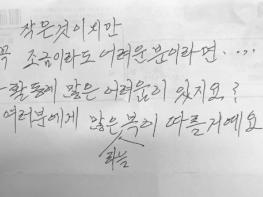 작은것이지만
꼭 조금이라도 어려운분이라면....
활동에 많은 어려움이 있지요?
여러분에게 많은 복이 따를거예요
하늘